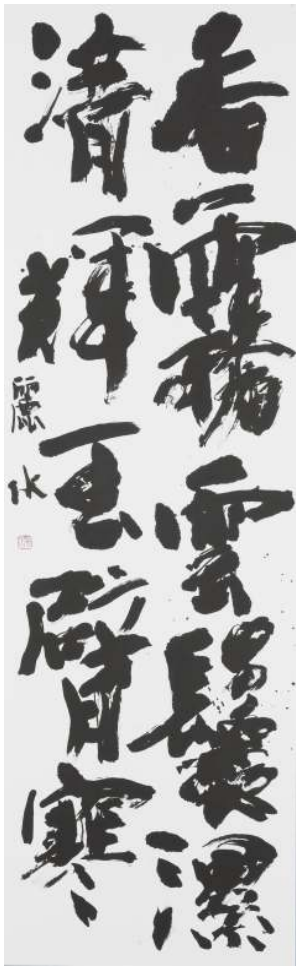 香霧雲鬟濕
清輝玉臂寒
麗水